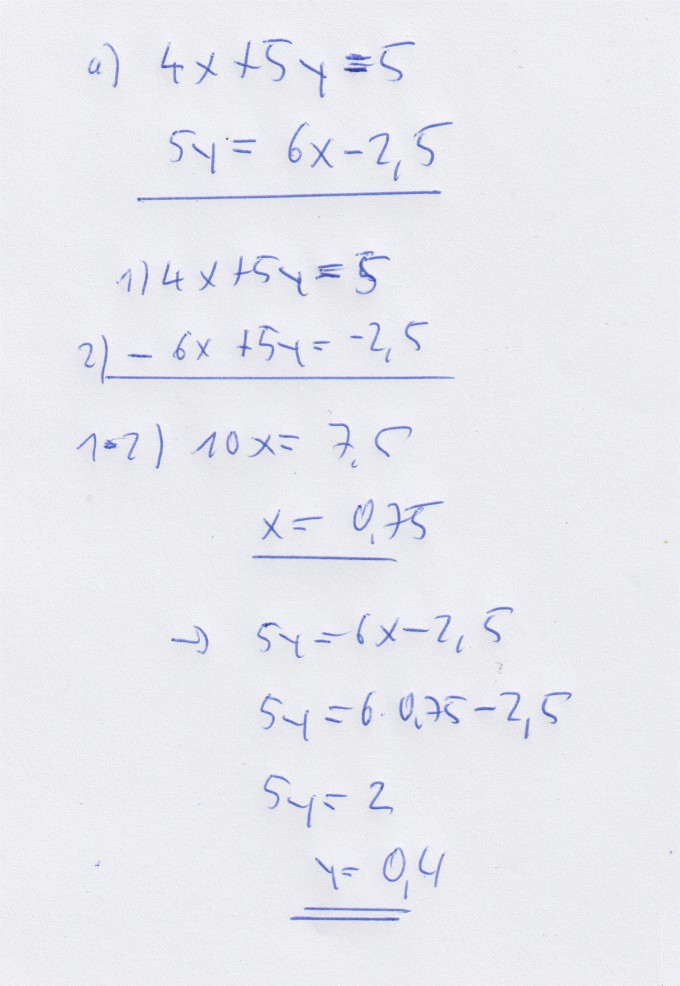 a) 4x+5y=5
5y= 6x-2,5
1) 4x+5y=5
2) - 6x +5y= -2,5
1-2) 10x= 7,5
x= 0,75
→ 5y=6x-2,5
5y=6·0,75-2,5
5y= 2
y= 0,4